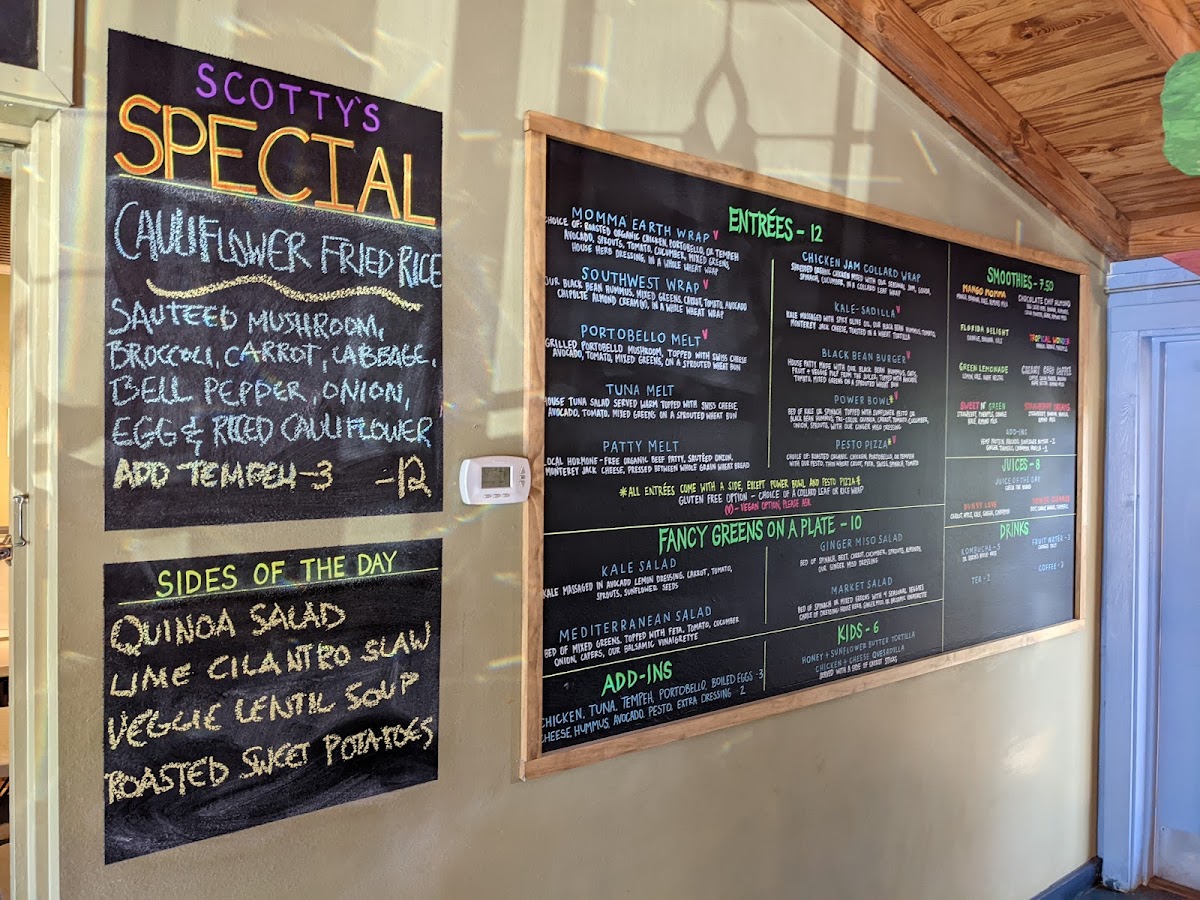 SCOTTY'S
SPECIAL
CAULIFLOWER FRIED RICE
SAUTEED MUSHROOM,
BROCCOLI, CARROT, CABBAGE,
BELL PEPPER, ONION,
EGG & RICED CAULIFLOWER
ADD TEMPEH-3 -12
SIDES OF THE DAY
QUINOA SALAD
LIME CILANTRO SLAW
VEGGIE LENTIL SOUP
ROASTED SWEET POTATOES
ENTRÉES - 12
MOMMA EARTH WRAP
CHOICE OF: ROASTED ORGANIC CHICKEN, PORTOBELLO, OR TEMPEH
AVOCADO, SPROUTS, TOMATO, CUCUMBER, MIXED GREENS
HOUSE HERB DRESSING, IN A WHOLE WHEAT WRAP
SOUTHWEST WRAP
OUR BLACK BEAN HUMMUS, MIXED GREENS, CARROT, TOMATO, AVOCADO
CHIPOTLE ALMOND CREAM(V), IN A WHOLE WHEAT WRAP
PORTOBELLO MELT
GRILLED PORTOBELLO MUSHROOM, TOPPED WITH SWISS CHEESE
AVOCADO, TOMATO, MIXED GREENS, ON A SPROUTED WHEAT BUN
TUNA MELT
HOUSE TUNA SALAD SERVED WARM TOPPED WITH SWISS CHEESE,
AVOCADO, TOMATO, MIXED GREENS ON A SPROUTED WHEAT BUN
PATTY MELT
LOCAL HORMONE-FREE ORGANIC BEEF PATTY, SAUTÉED ONION,
MONTEREY JACK CHEESE, PRESSED BETWEEN WHOLE GRAIN WHEAT BREAD
CHICKEN JAM COLLARD WRAP
SHREDDED ORGANIC CHICKEN MIXED WITH OUR SEASONAL JAM,
SPINACH, CUCUMBER, IN A COLLARD LEAF WRAP
KALE-SADILLA
KALE MASSAGED WITH SPICY OLIVE OIL, OUR BLACK BEAN HUMMUS, TOMATO,
MONTEREY JACK CHEESE, TOASTED IN A WHEAT TORTILLA
BLACK BEAN BURGER
HOUSE PATTY MADE WITH OUR BLACK BEAN HUMMUS, OATS,
FRUIT + VEGGIE PULP FROM THE JUICER, TOPPED WITH AVOCADO,
TOMATO, MIXED GREENS ON A SPROUTED WHEAT BUN
POWER BOWL*
BED OF KALE OR SPINACH TOPPED WITH SUNFLOWER PESTO OR
BLACK BEAN HUMMUS, TRI-COLOR QUINOA, CARROT, TOMATO, CUCUMBER,
ONION, SPROUTS, WITH OUR GINGER MISO DRESSING
PESTO PIZZA*
CHOICE OF: ROASTED ORGANIC CHICKEN, PORTOBELLO, OR TEMPEH
WITH OUR PESTO, THIN WHEAT CRUST, FETA, SWISS, SPINACH, TOMATO
*ALL ENTRÉES COME WITH A SIDE, EXCEPT POWER BOWL AND PESTO PIZZA*
GLUTEN FREE OPTION - CHOICE OF A COLLARD LEAF OR RICE WRAP
(♥)- VEGAN OPTION, PLEASE ASK
FANCY GREENS ON A PLATE - 10
KALE SALAD
KALE MASSAGED IN AVOCADO LEMON DRESSING, CARROT, TOMATO,
SPROUTS, SUNFLOWER SEEDS
MEDITERRANEAN SALAD
BED OF MIXED GREENS, TOPPED WITH FETA, TOMATO, CUCUMBER
ONION, CAPERS, OUR BALSAMIC VINAIGRETTE
GINGER MISO SALAD
BED OF SPINACH, BEET, CARROT, CUCUMBER, SPROUTS, ALMONDS,
OUR GINGER MISO DRESSING
MARKET SALAD
BED OF SPINACH OR MIXED GREENS WITH 4 SEASONAL VEGGIES
CHOICE OF DRESSING: HOUSE HERB, GINGER MISO, OR BALSAMIC VINAIGRETTE
ADD-INS
CHICKEN, TUNA, TEMPEH, PORTOBELLO, BOILED EGGS -3
CHEESE, HUMMUS, AVOCADO, PESTO, EXTRA DRESSING - 2
KIDS - 6
HONEY + SUNFLOWER BUTTER TORTILLA
CHICKEN + CHEESE QUESADILLA
SERVED WITH A SIDE OF CARROT STICKS
SMOOTHIES - 7.50
MANGO MOMMA
CHOCOLATE CHIP ALMOND
FLORIDA DELIGHT
TROPICAL WONDER
GREEN LEMONADE
CREAMY OATS COFFEE
SWEET N' GREEN
ADD-INS
JUICES - 8
JUICE OF THE DAY
BUNNY LOVE
DRINKS
KOMBUCHA - 5
FRUIT WATER - 3
TEA - 2
COFFEE - 3